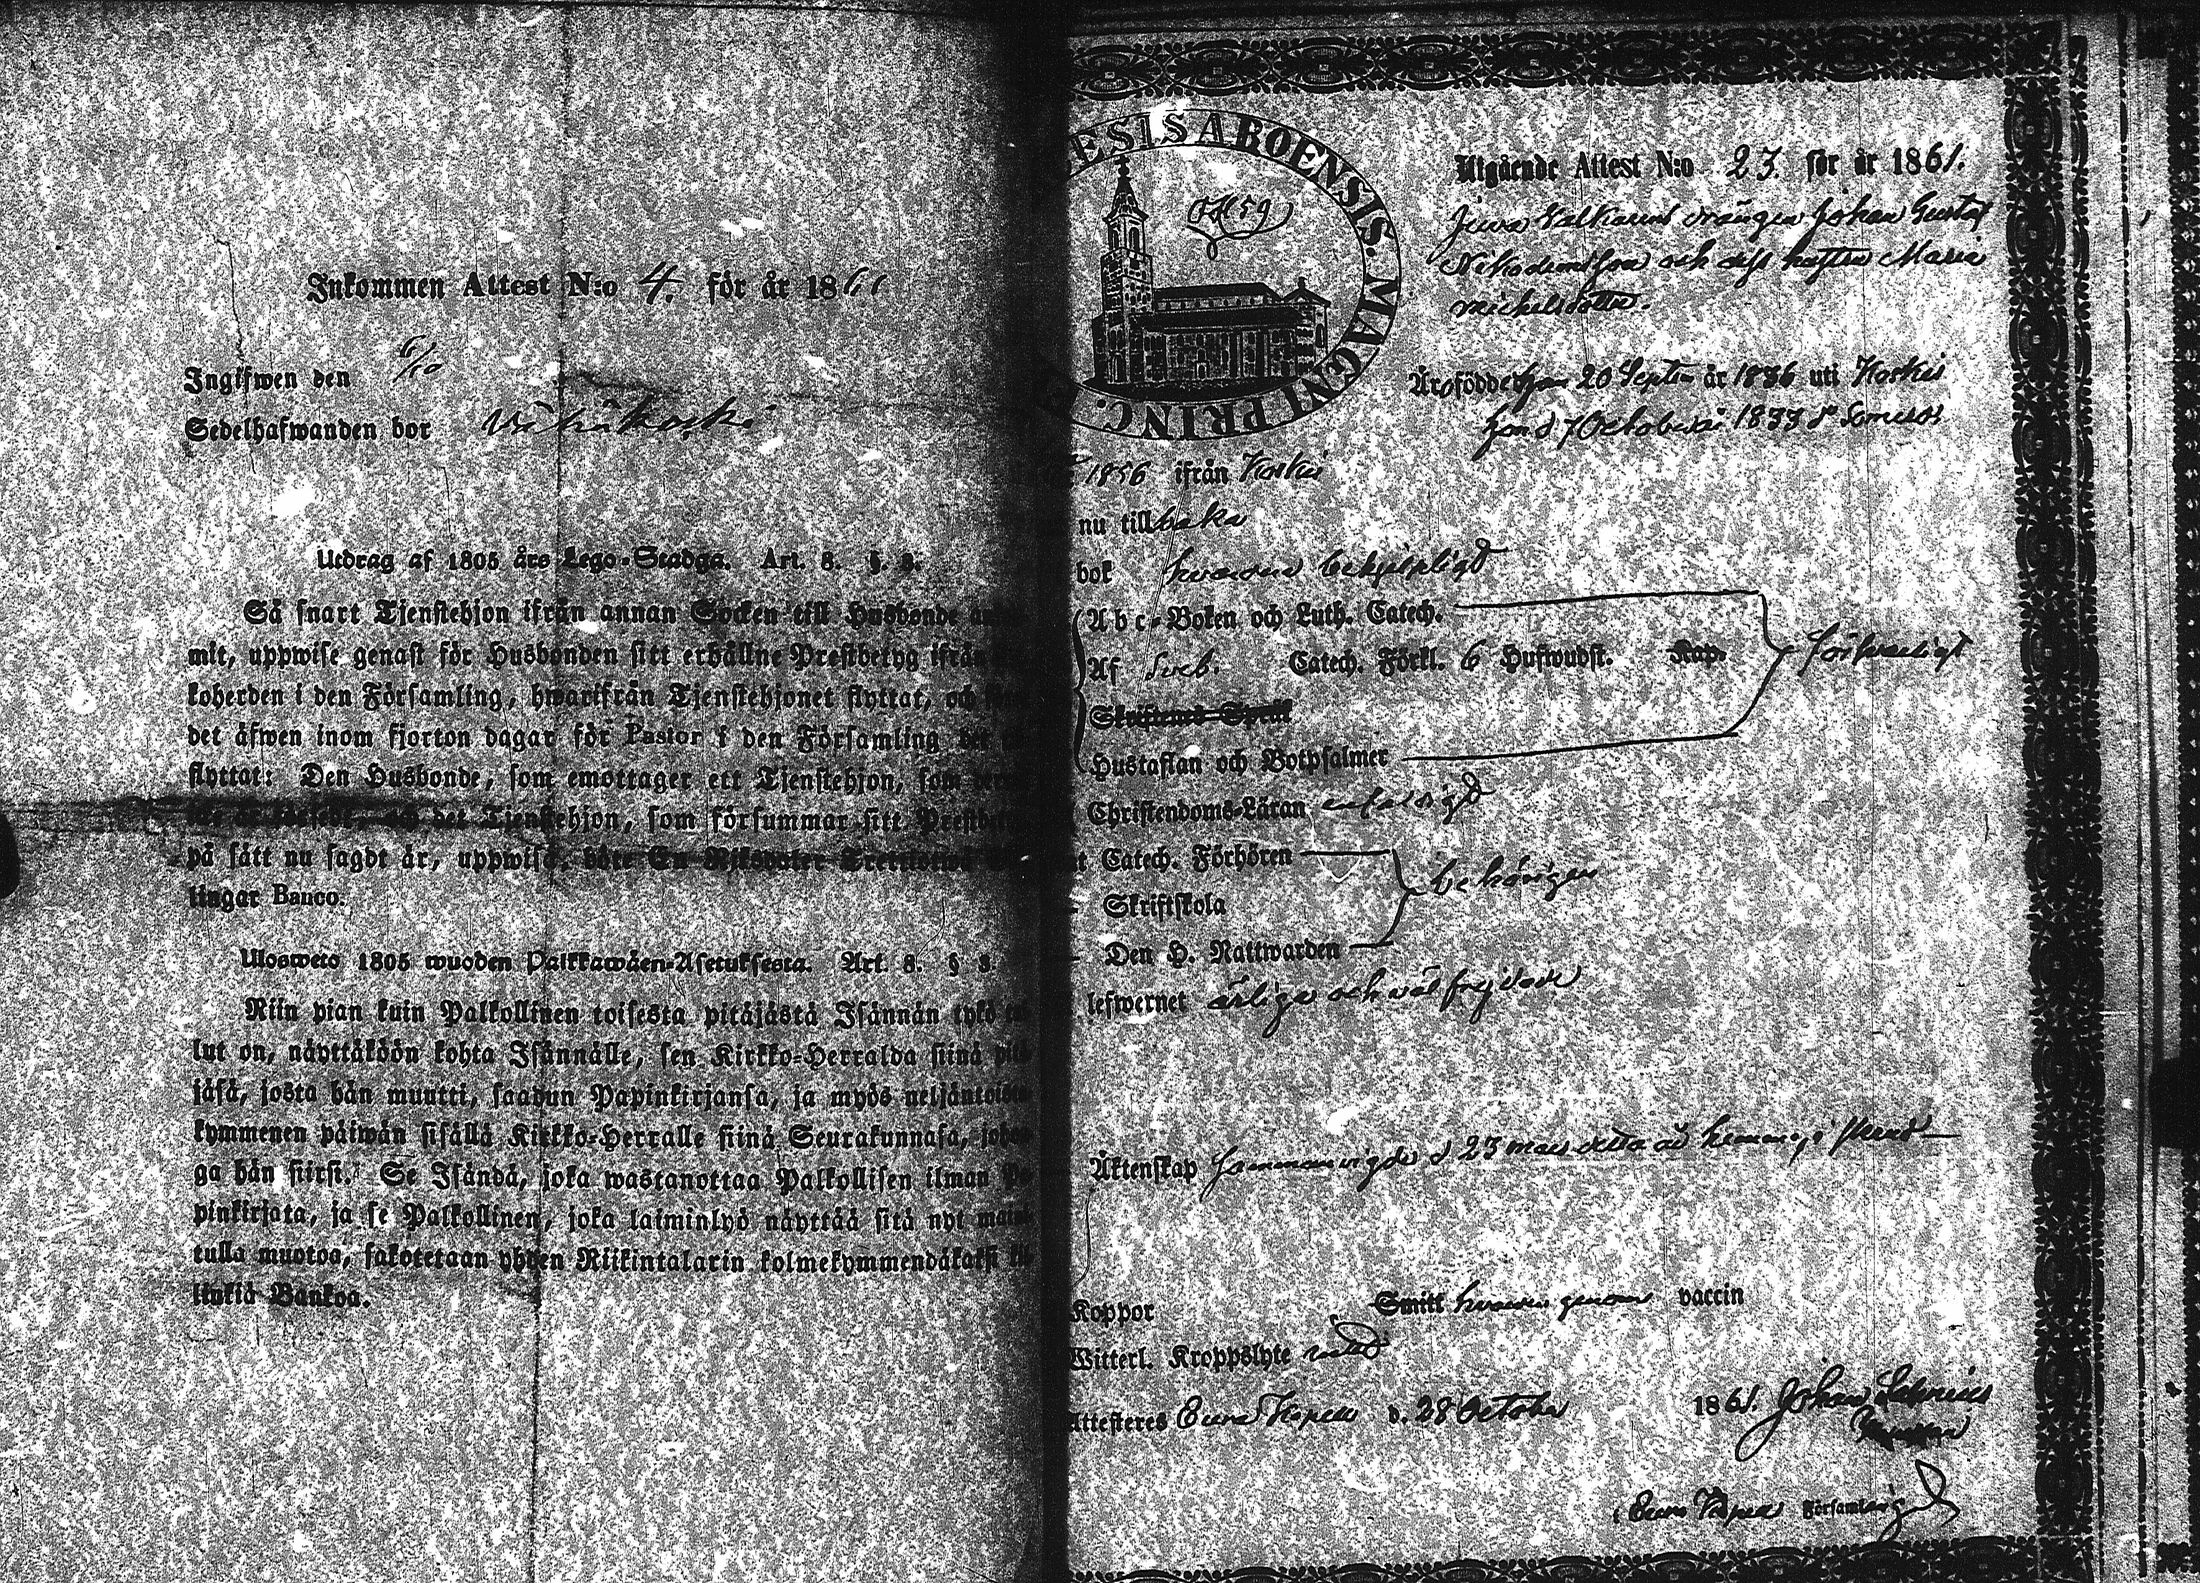 Inkommen Attest N:o 4. för år 1861
Ingifwen den 6/10
Sedelhafwanden bor Vähäkoski
Utdrag af 1805 års Lego-Stadga. Art. 8. §. 8.
Så snart Tjenstehjon ifrån annan Socken till Husbonde
mit, uppwise genast för Husbonden sitt erhållne Prestbetyg ifrån
koherden i den Församling, hwarifrån Tjenstehjonet flyttat, och
det äfwen inom fjorton dagar för Pastor i den Församling
flyttat: Den Husbonde, som emottager ett Tjenstehjon, som
det Tjenstehjon, som försummar sitt
på sätt nu sagdt är, uppwisa, böte En Riksdaler Trettiotwå
lingar Banco.
Ulosweto 1805 wuoden Palkkawäen-Asetuksesta. Art. 8. § 8.
Niin pian kuin Palkollinen toisesta pitäjästä Isännän tykö
lut on, näyttäköön kohta Isännälle, sen Kirkko-Herralda siinä
jäsä, josta hän muutti, saadun Papinkirjansa, ja myös neljäntoista
kymmenen päiwän sisällä Kirkko-Herralle siinä Seurakunnasa,
ga hän siirsi. Se Isändä, joka wastanottaa Palkollisen ilman
pinkirjata, ja se Palkollinen, joka laiminlyö näyttää sitä nyt
tulla muotoa, sakotetaan yhden Riikintalarin kolmekymmendäkaksi
linkiä Bankoa.
ESIS ABOENSIS. MAGNI PRINC.
Utgående Attest N:o 23 för år 1861.
drängen Johan Gustaf
Nikodemsson och dess hustru Maria
Michelsdotter.
Äro födde han 20 Septem år 1836 uti Koskis
hon d 7 October 1833 i Somero
1856 ifrån Koskis
nu tillbaka
bok hwarons behjelpligt
Abc-Boken och Luth. Catech.
Af Sveb. Catech. Förkl. 6 Hufwudst. Kap. försvarligt
Skriftenes Språk
Hustaflan och Botpsalmer
Christendoms-Läran enfaldigt
Catech. Förhören
Skriftskola behörigen
Den H. Nattwarden
lefwernet ärliga och väl frejdade
Äktenskap sammanvigde d 23 mars detta år
Koppor Smitt genom vaccin
Witterl. Kroppslyte
Attesteres Eura Kapell d. 28 October 1861. Johan
i Eura Kapell Församling